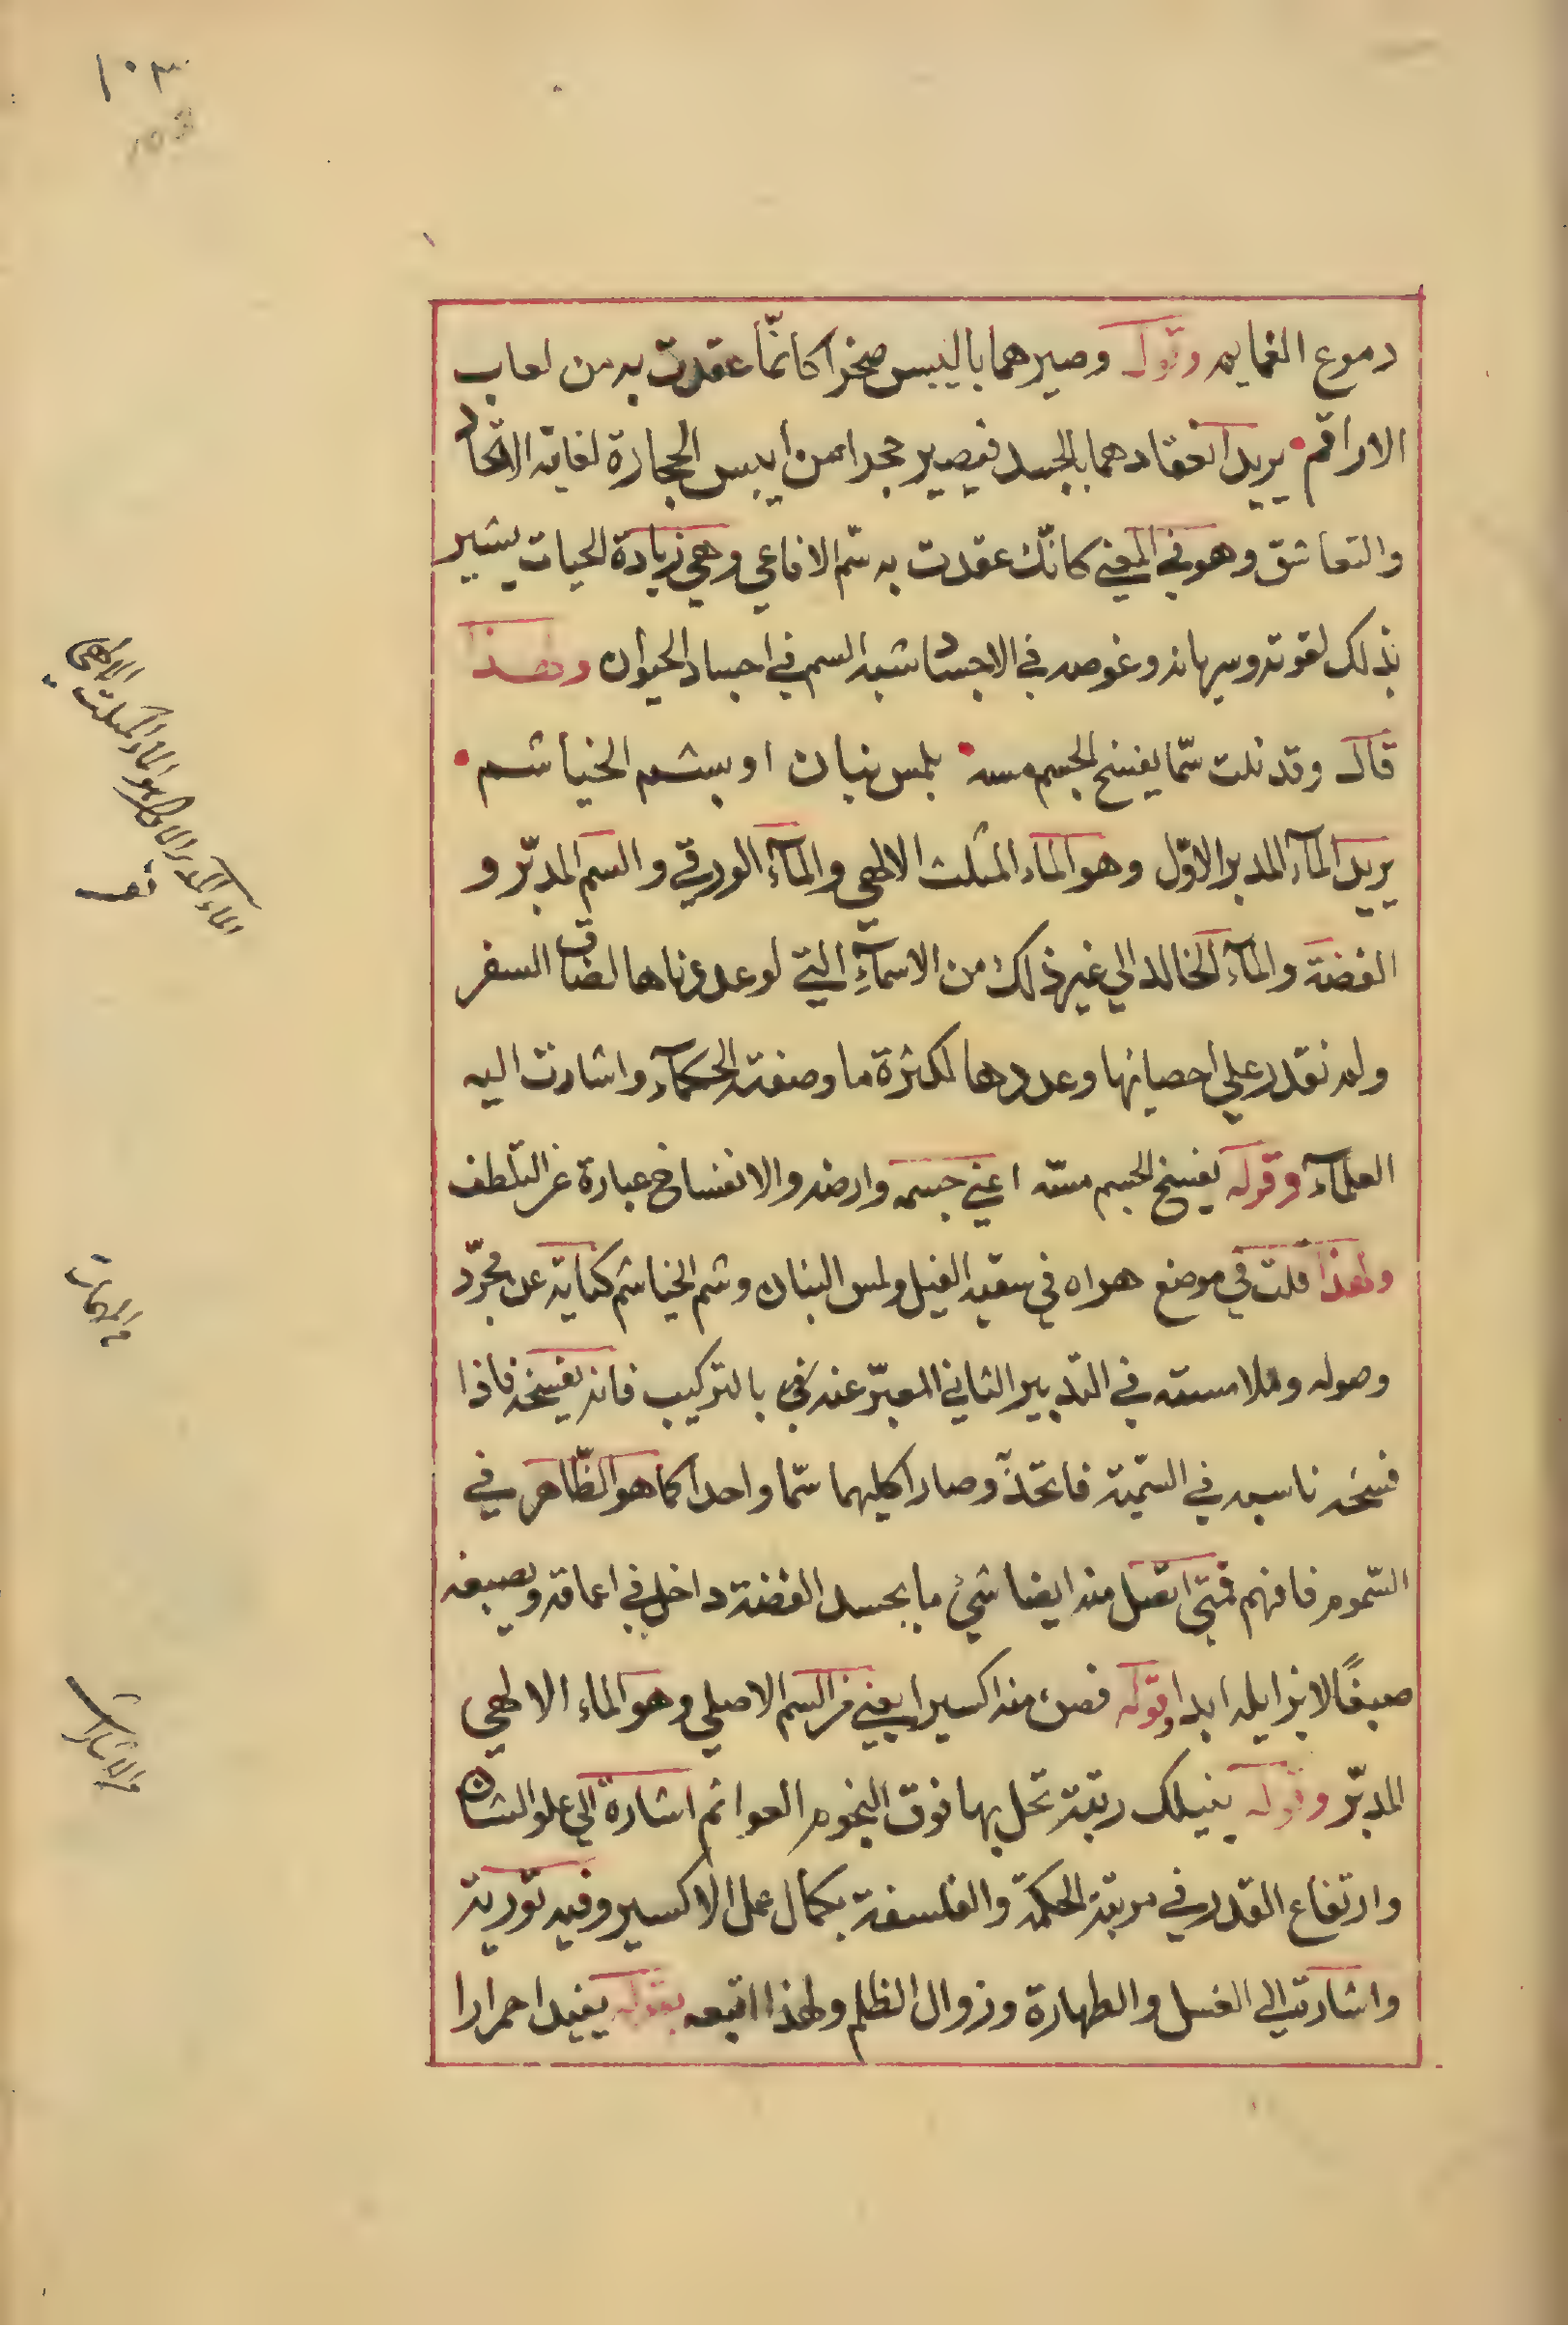 ١٠٣
دموع الغمايم وقوله وصيرهما باليبس صخرا كانمّا عقدت به من لعاب
الاراقم يريد انعقادهما بالجسد فيصير حجرا من ايبس الحجارة لغاية الاتحاد
والتعاشق وهو في المعني كانّك عقدت به سّم الافاعي وهي زيادة الحيات يشير
بذلك لقوته وسريانه وغوصه في الاجساد شبه السم في اجساد الحيوان ولهذا
قال وقد نلت سّما يفسخ الجسم مسه بلمس بنان او بشم الخياشم
يريد المآء المدبر الاوّل وهو الماء المثلث الالهي والمآء الورقي والسم المدبّر و
الفضة والمآء الخالد الي غير ذلك من الاسمآءِ التي لو عددناها لضاق السفر
ولم نقدر علي احصائها وعددها لكثرة ما وصفته الحكمآء واشارت اليه
العلمآء وقوله يفسخ الجسم مسّه اعني جسمه وارضه والانفساخ عبارة عن التلطف
ولهذا قلت في موضع هواه في سقيه الفيل ولمس البنان وشم الخياشم كناية عن مجرّد
وصوله وملامسته في التدبير الثاني المعبّر عنه بالتركيب فانه يفسخه فاذا
فسخه ناسبه في السّمية فاتحدّ وصارا كليهما سّما واحدا كما هو الظّاهر في
السّموم فافهم فمتي اتصل منه ايضا شيئ ما بجسد الفضة داخل في اعماقه ويصبغه
صبغًا لا يزايله ابدا وقوله فصن منه اكسيرا يعني من السم الاصلي وهو الماء الالهي
المدبّر وقوله ينيلك رتبة تحل بها فوق النجوم العوائم اشارة الي علو الشان
وارتفاع القدر في مرتبة الحكمة والفلسفة بكمال عمل الاكسير وفيه تورية
واشارة الي الغسل والطهارة وزوال الظلم ولهذا اتبعه بقوله يفيد احمرارا